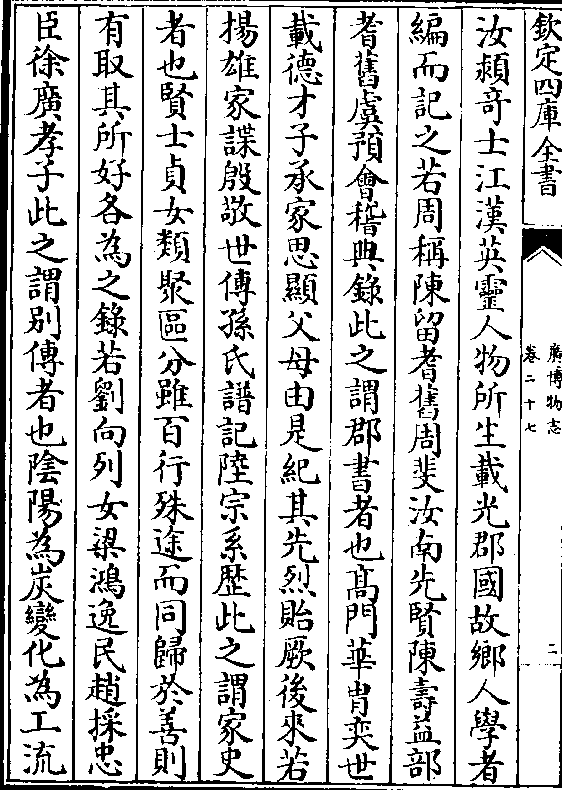 欽定四庫全書
廣博物志
卷二十七
二
汝潁竒士江漢英靈人物所生載光郡國故鄉人學者
編而記之若周稱陳留耆舊周斐汝南先賢陳壽益部
耆舊虞預會稽典錄此之謂郡書者也髙門華胄奕世
載德才子承家思顯父母由是紀其先烈貽厥後來若
揚雄家諜殷敬世傳孫氏譜記陸宗系歴此之謂家史
者也賢士貞女類聚區分雖百行殊途而同歸於善則
有取其所好各為之錄若劉向列女梁鴻逸民趙採忠
臣徐廣孝子此之謂别傳者也陰陽為炭變化為工流